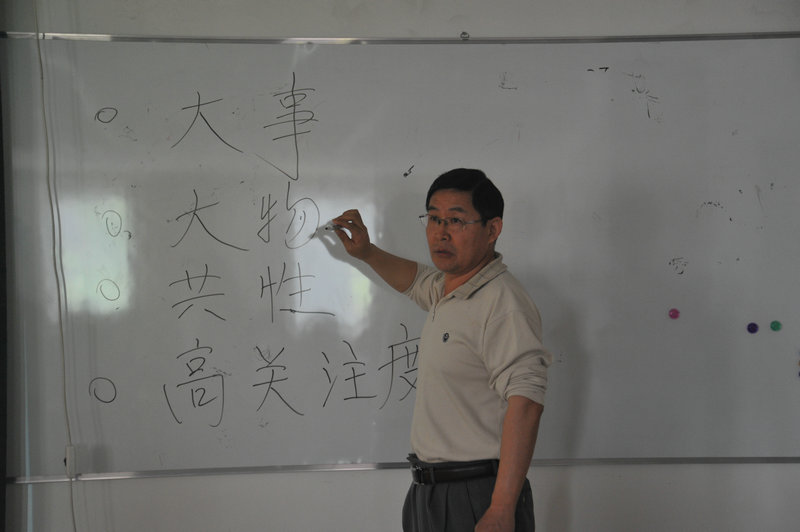 大事
大物
共性
高关注度